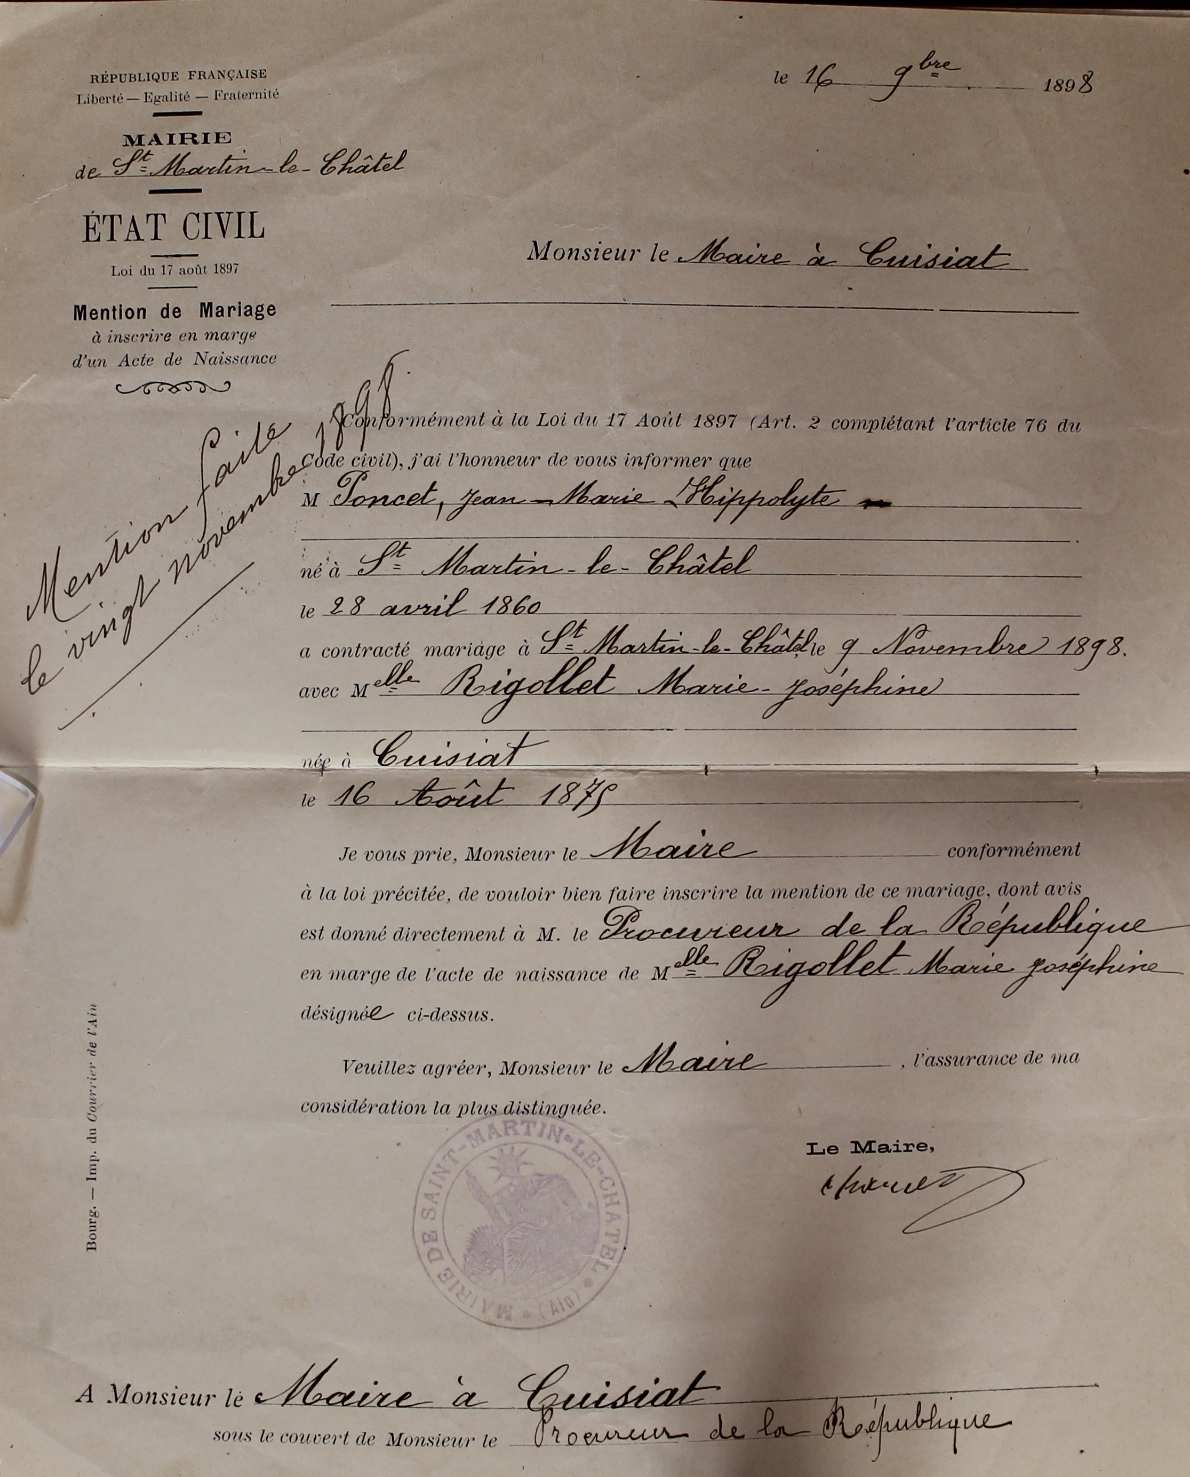 RÉPUBLIQUE FRANÇAISE
Liberté — Egalité — Fraternité
le 16 9bre 1898
MAIRIE
de St Martin-le-Châtel
ÉTAT CIVIL
Loi du 17 août 1897
Mention de Mariage
à inscrire en marge
d'un Acte de Naissance
Monsieur le Maire à Cuisiat
Mention faite
le vingt novembre 1898
Conformément à la Loi du 17 Août 1897 (Art. 2 complétant l'article 76 du
Code civil), j'ai l'honneur de vous informer que
M Poncet, Jean-Marie Hippolyte
né à St Martin-le-Châtel
le 28 avril 1860
a contracté mariage à St Martin-le-Châtel, le 9 Novembre 1898.
avec Melle Rigollet Marie-Joséphine
née à Cuisiat
le 16 Août 1875
Je vous prie, Monsieur le Maire conformément
à la loi précitée, de vouloir bien faire inscrire la mention de ce mariage, dont avis
est donné directement à M. le Procureur de la République
en marge de l'acte de naissance de Melle Rigollet Marie Joséphine
désignée ci-dessus.
Veuillez agréer, Monsieur le Maire, l'assurance de ma
considération la plus distinguée.
Le Maire,
MAIRIE DE SAINT-MARTIN-LE-CHATEL (Ain)
Bourg. — Imp. du Courrier de l'Ain
A Monsieur le Maire à Cuisiat
sous le couvert de Monsieur le Procureur de la République